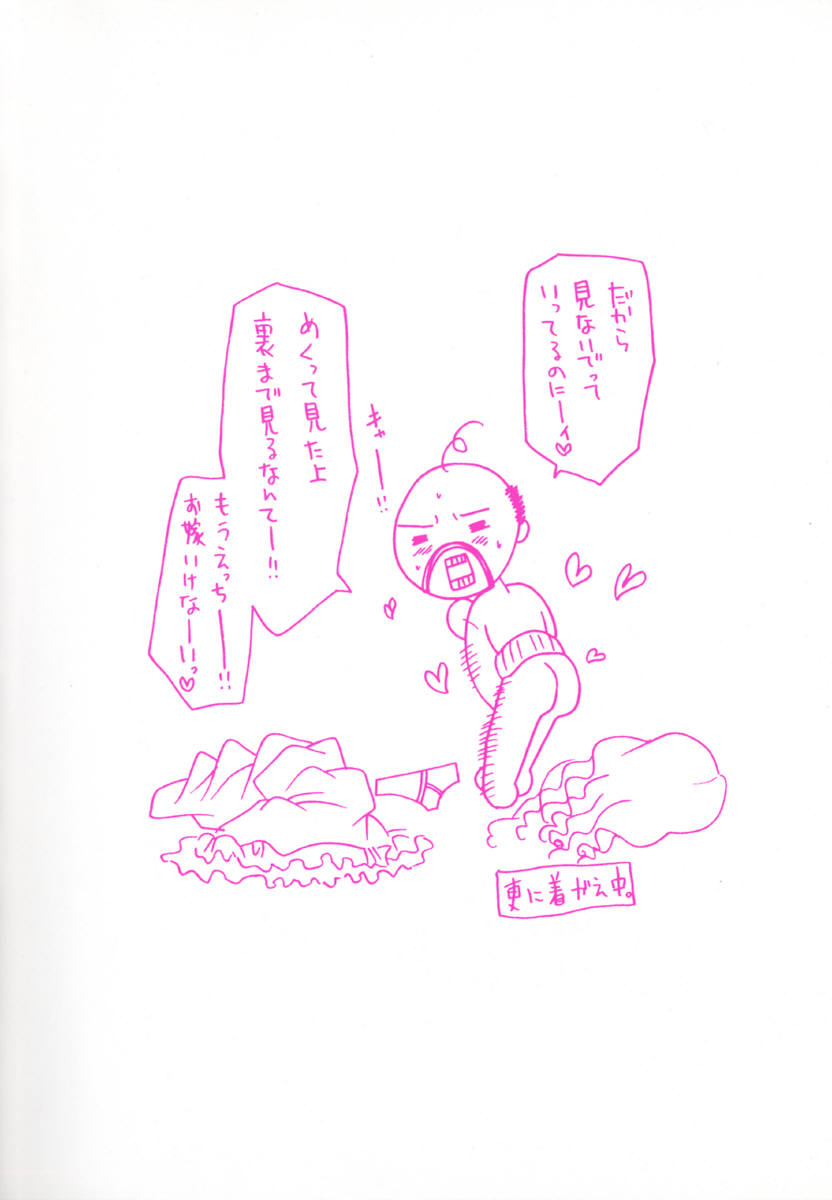 だから
見ないでって
いってるのにーィ♡
キャーー!!
めくって見た上
裏まで見るなんてー!!
もうえっちーー!!
お嫁いけなーいっ♡
更に着がえ中。